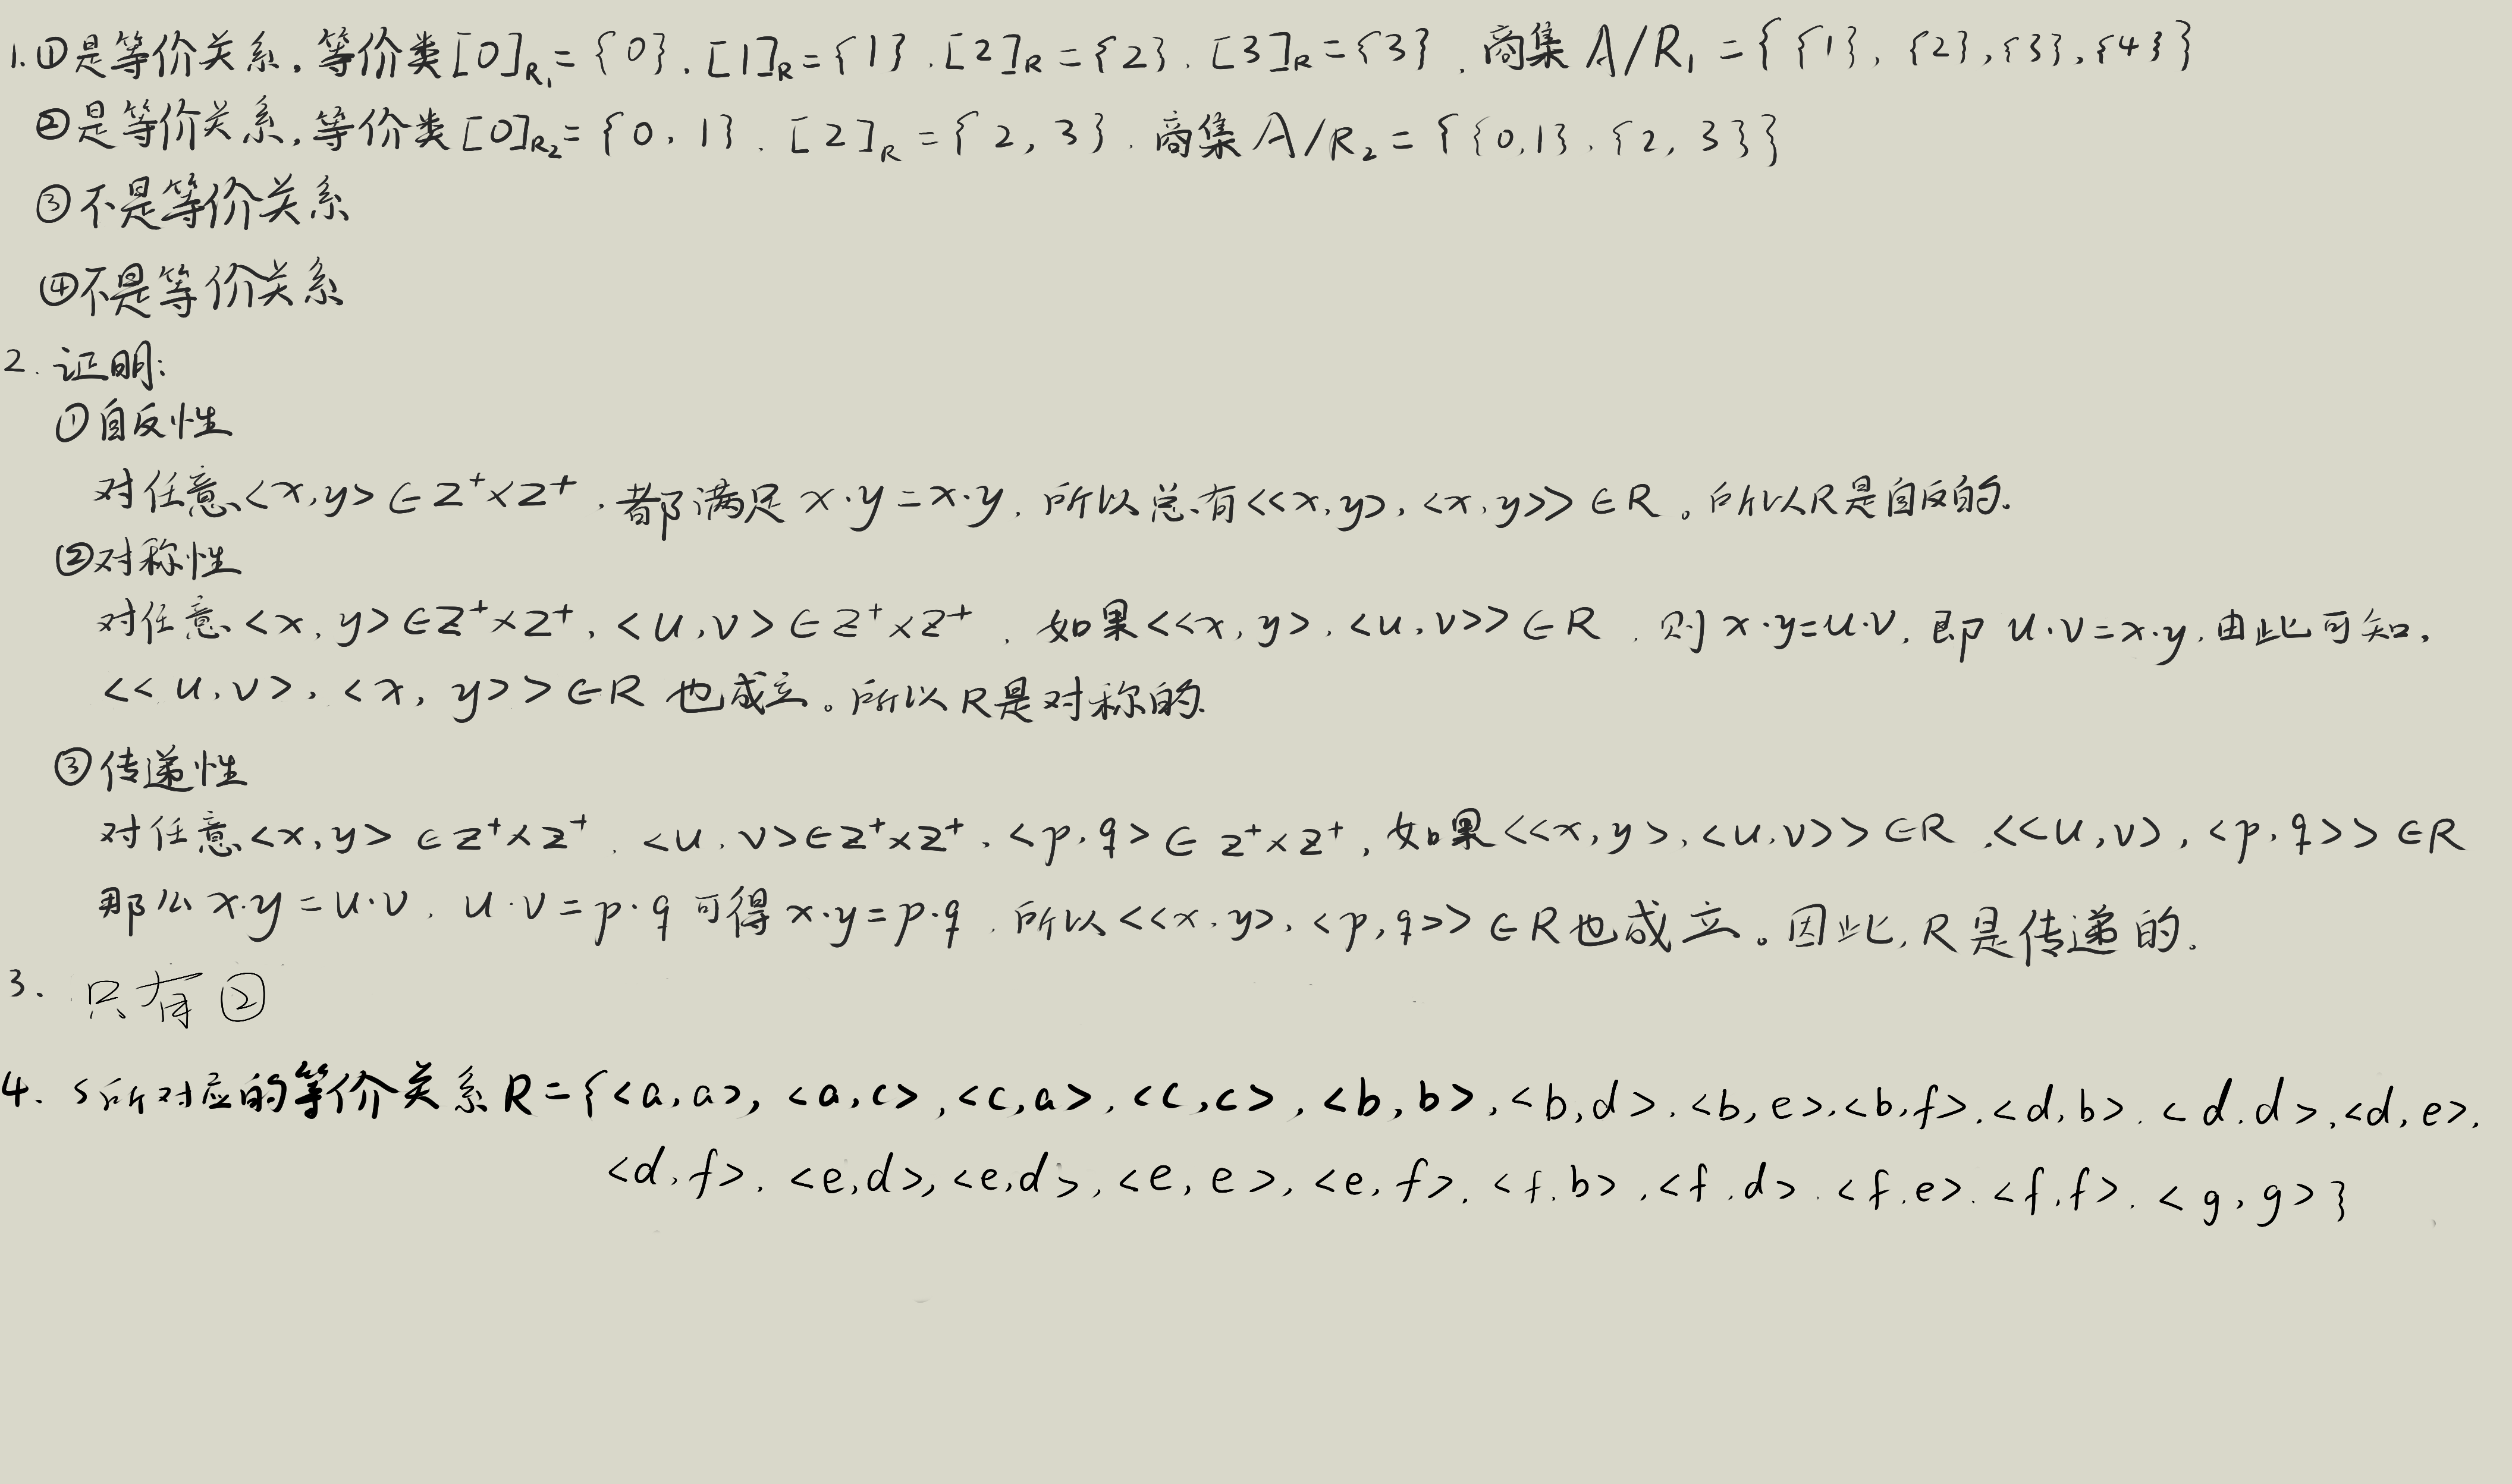 1.①是等价关系,等价类[0]R₁={0}.[1]R={1}.[2]R={2}.[3]R={3}.商集A/R₁={{1},{2},{3},{4}}
②是等价关系,等价类[0]R₂={0,1}.[2]R={2,3}.商集A/R₂={{0,1},{2,3}}
③不是等价关系
④不是等价关系
2.证明:
①自反性
对任意<x,y>∈Z⁺×Z⁺,都满足x·y=x·y,所以总有<<x,y>,<x,y>>∈R。所以R是自反的.
②对称性
对任意<x,y>∈Z⁺×Z⁺,<u,v>∈Z⁺×Z⁺,如果<<x,y>,<u,v>>∈R.则x·y=u·v,即u·v=x·y,由此可知,
<<u,v>,<x,y>>∈R也成立。所以R是对称的.
③传递性
对任意<x,y>∈Z⁺×Z⁺.<u,v>∈Z⁺×Z⁺,<p,q>∈Z⁺×Z⁺,如果<<x,y>,<u,v>>∈R,<<u,v>,<p,q>>∈R
那么x·y=u·v,u·v=p·q可得x·y=p·q.所以<<x,y>,<p,q>>∈R也成立。因此,R是传递的。
3.只有②
4.S所对应的等价关系R={<a,a>,<a,c>,<c,a>,<c,c>,<b,b>,<b,d>,<b,e>,<b,f>,<d,b>,<d,d>,<d,e>,
<d,f>,<e,d>,<e,d>,<e,e>,<e,f>,<f,b>,<f,d>,<f,e>,<f,f>,<g,g>}